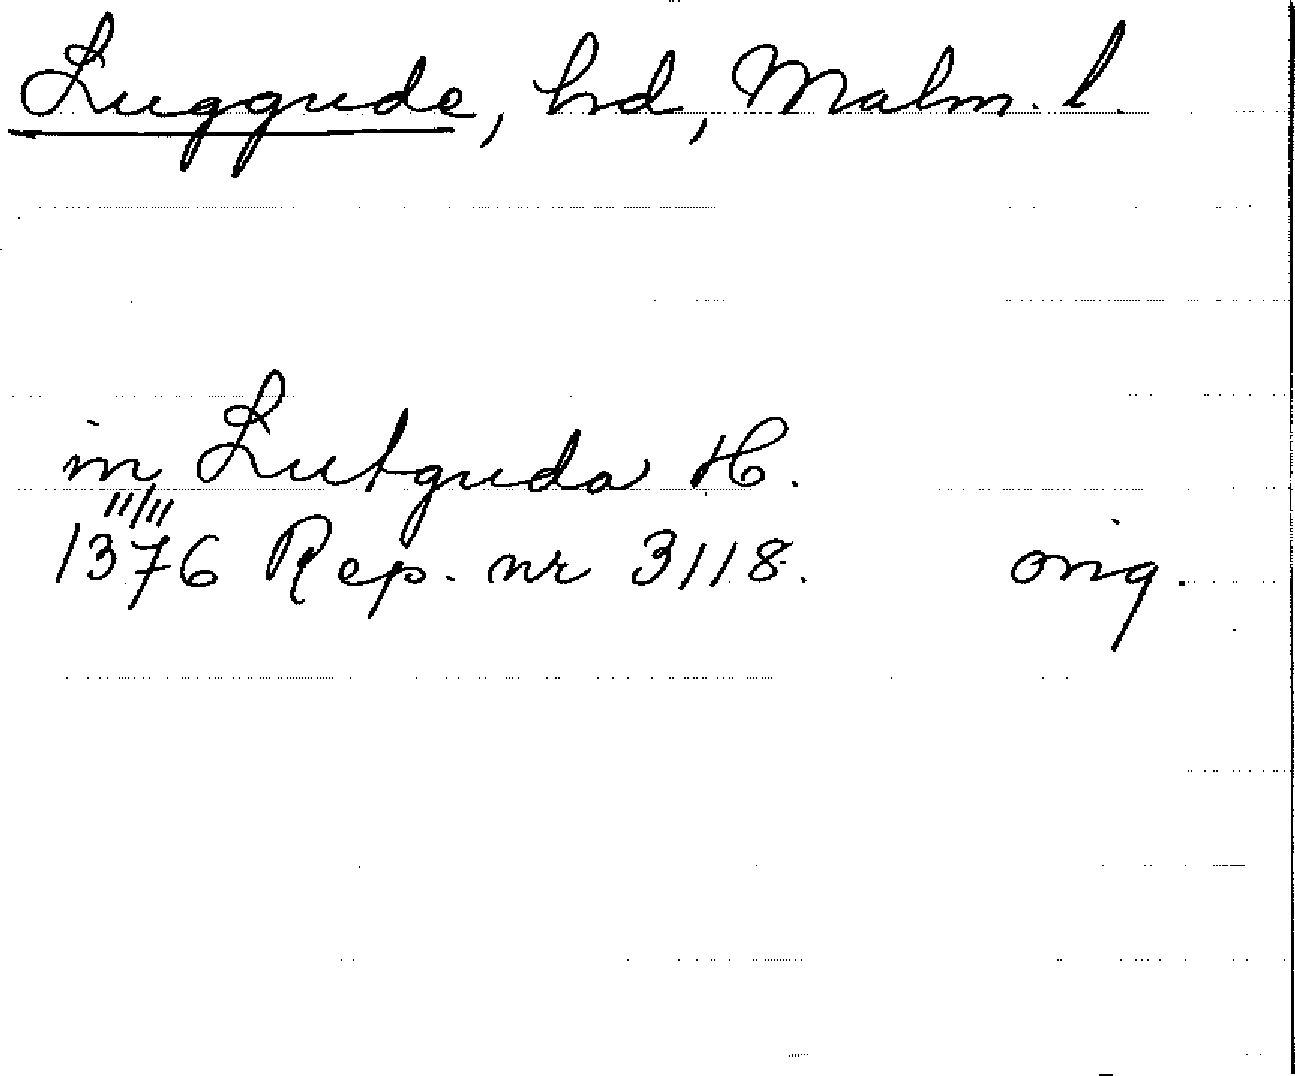 Luggude, hd, Malm. l.
in Lutguda H.
11/11
1376 Rep. nr 3118. orig.